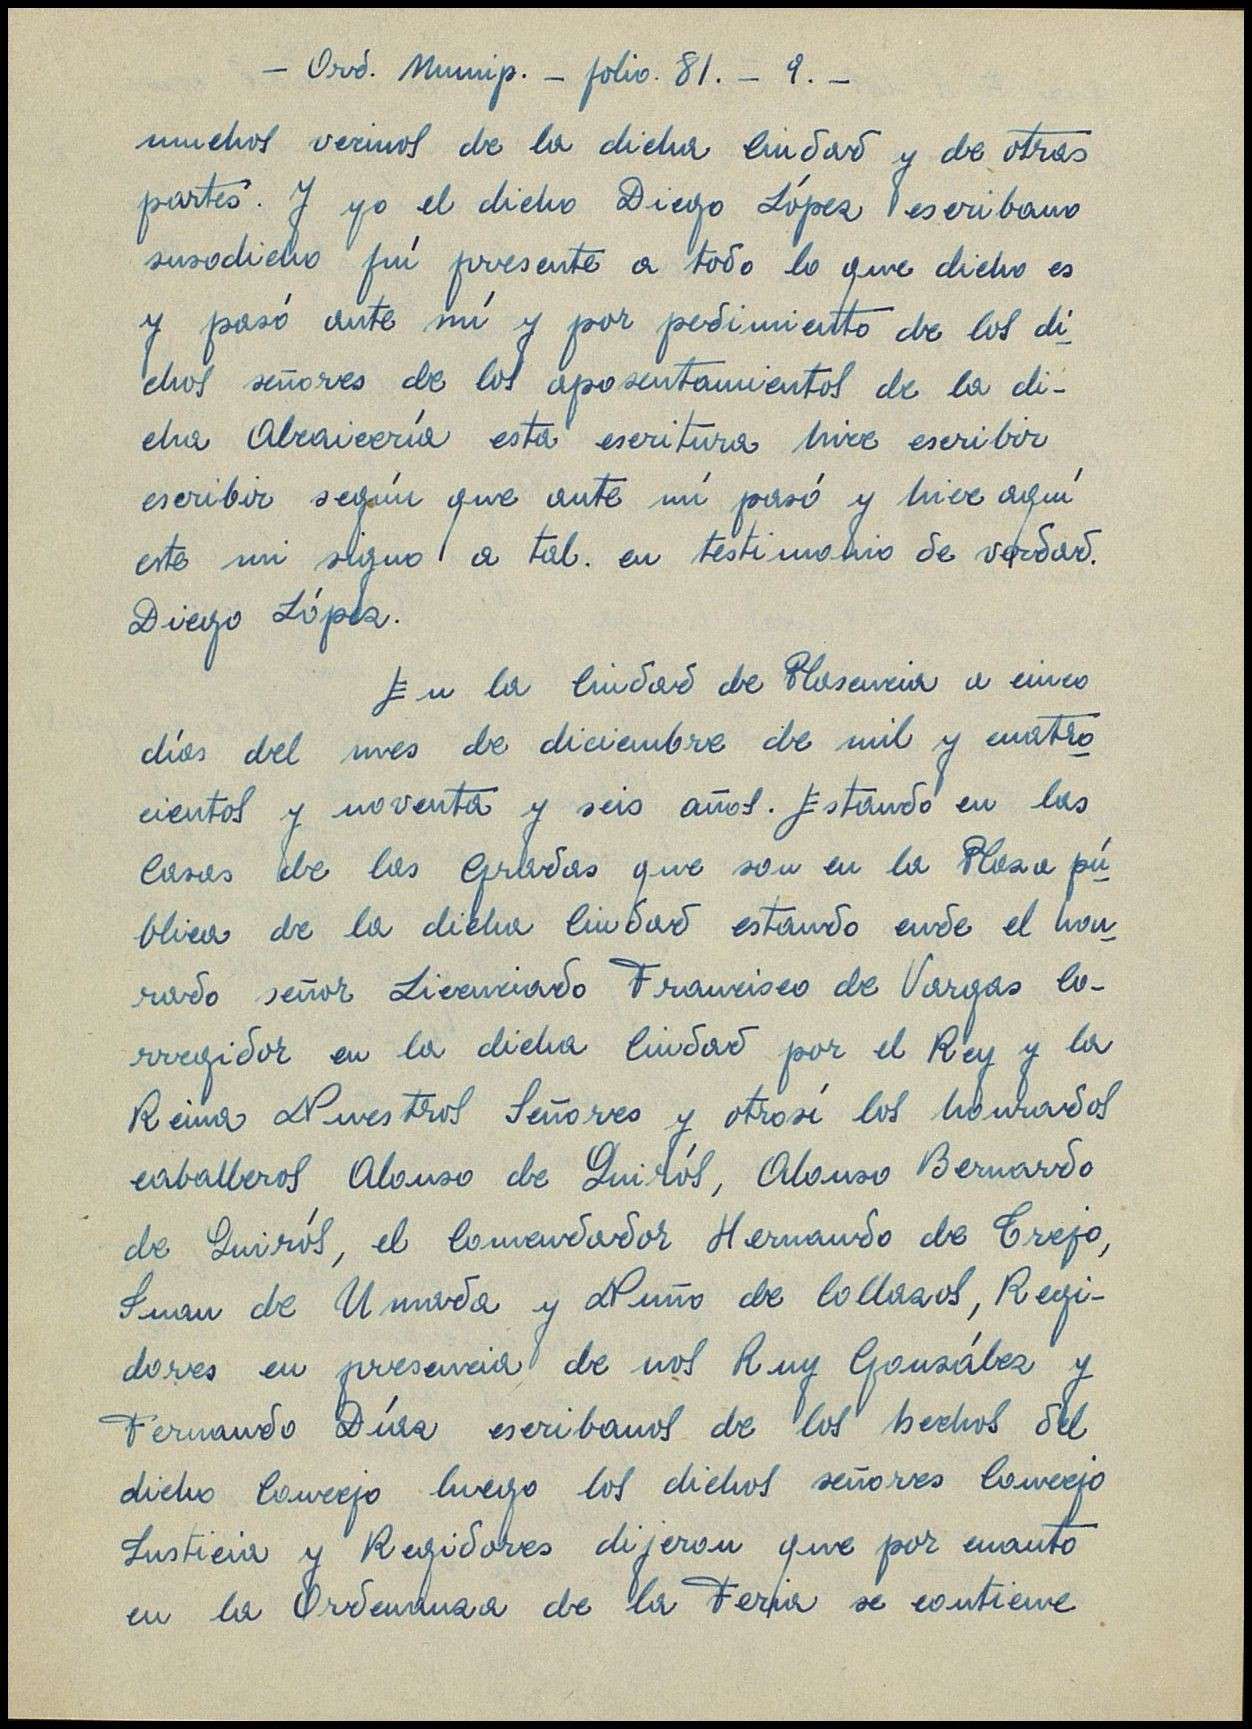 - Ord. Municip. - folio. 81. - 9. -
muchos vecinos de la dicha Ciudad y de otras
partes. Y yo el dicho Diego López escribano
susodicho fuí presente a todo lo que dicho es
y pasó ante mí y por pedimiento de los di-
chos señores de los aposentamientos de la di-
cha Alcaicería esta escritura hice escribir
escribir según que ante mí pasó y hice aquí
este mi signo a tal. en testimonio de verdad.
Diego López.
En la Ciudad de Plasencia a cinco
días del mes de diciembre de mil y cuatro
cientos y noventa y seis años. Estando en las
Casas de las Gradas que son en la Plaza pú-
blica de la dicha Ciudad estando ende el hon-
rado señor Licenciado Francisco de Vargas Co-
rregidor en la dicha Ciudad por el Rey y la
Reina Nuestros Señores y otrosí los honrados
caballeros Alonso de Quirós, Alonso Bernardo
de Quirós, el Comendador Hernando de Trejo,
Juan de Umada y Nuño de Collazos, Regi-
dores en presencia de nos Ruy Gonsález y
Fernando Díaz escribanos de los hechos del
dicho Concejo luego los dichos señores Concejo
Justicia y Regidores dijeron que por cuanto
en la Ordenanza de la Feria se contiene